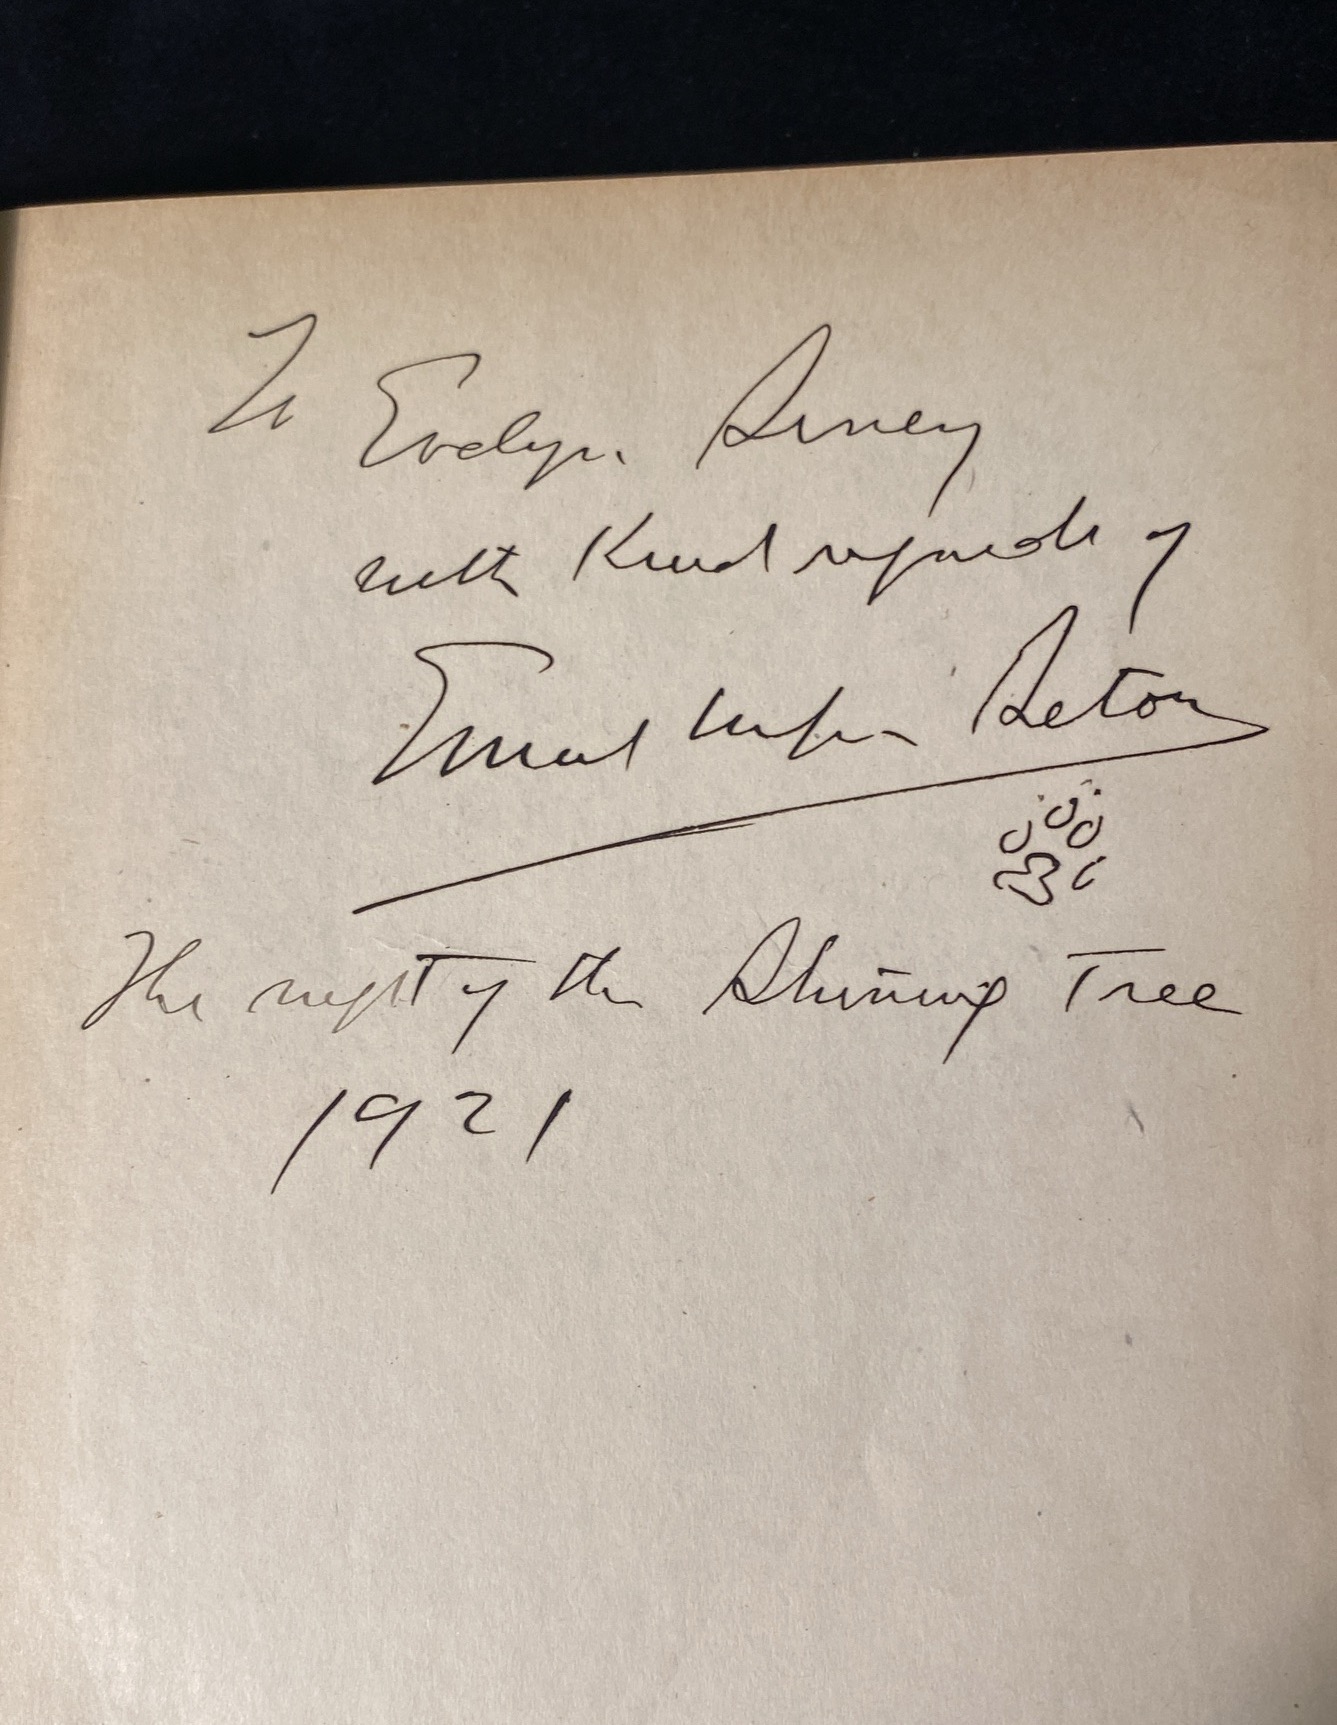 To Evelyn
with Kind regards of
Ernest Thompson Seton
The night of the Shining Tree
1921